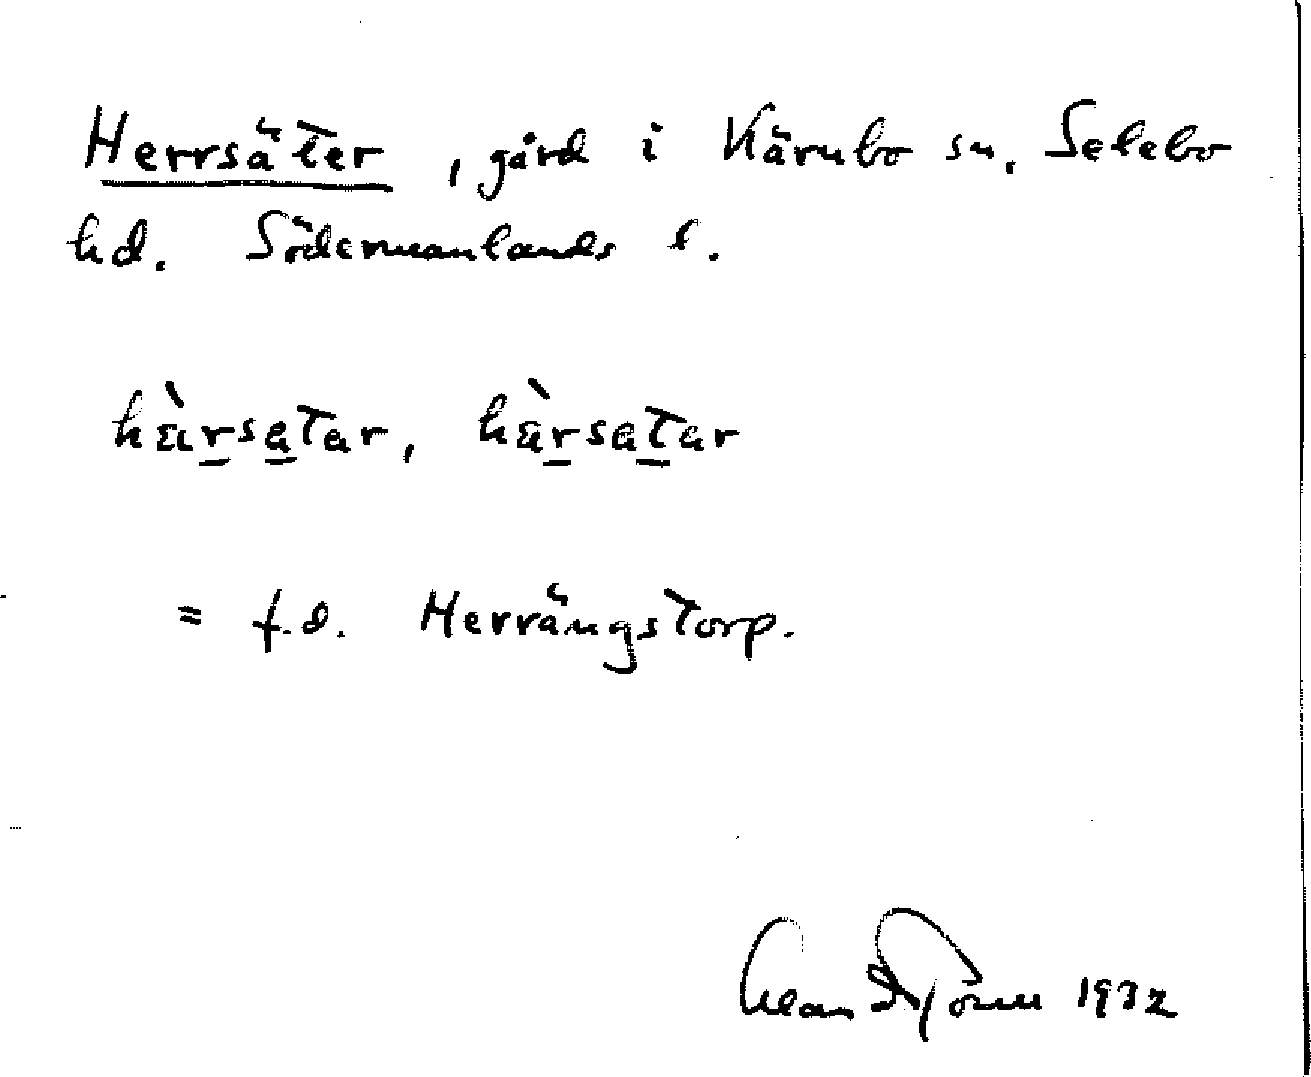 Herrsäter, gård i Kärnbo sn. Selebo
hd. Södermanlands l.
hä̀rsatar, hä̀rsatar
= f.d. Herrängstorp.
1932